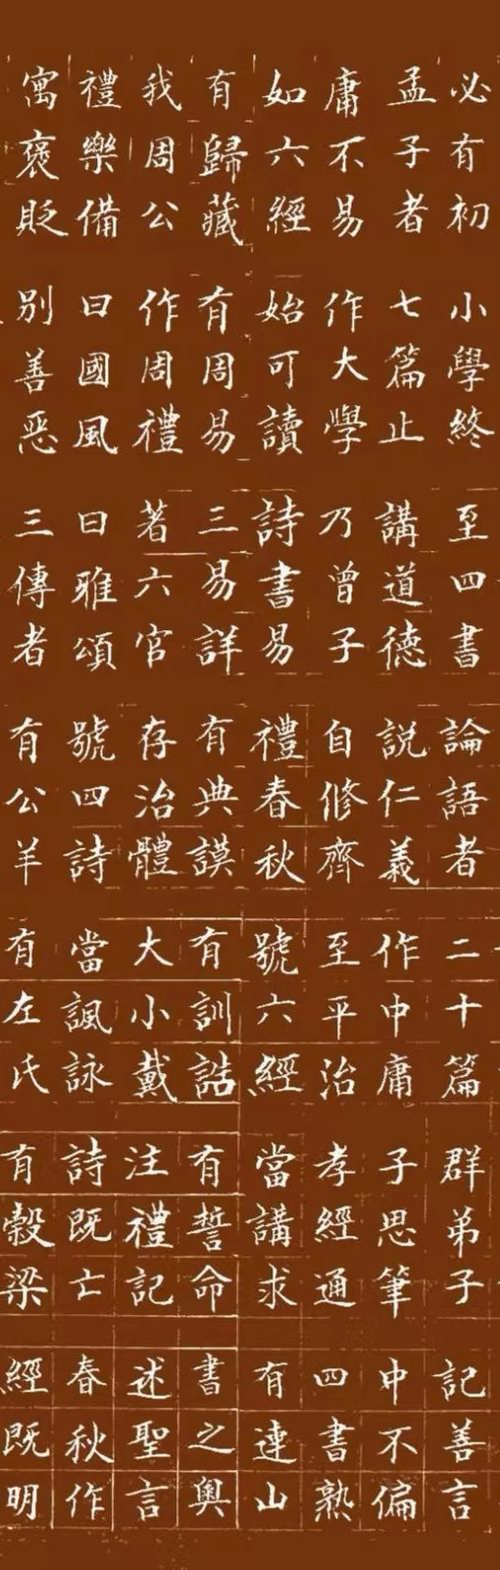 必有初小學終至四書論語者二十篇群弟子記善言
孟子者七篇止講道德說仁義作中庸子思筆中不偏
庸不易作大學乃曾子自修齊至平治孝經通四書熟
如六經始可讀詩書易禮春秋號六經當講求有連山
有歸藏有周易三易詳有典謨有訓誥有誓命書之奧
我周公作周禮著六官存治體大小戴注禮記述聖言
禮樂備曰國風曰雅頌號四詩當諷詠詩既亡春秋作
寓褒貶別善惡三傳者有公羊有左氏有穀梁經既明